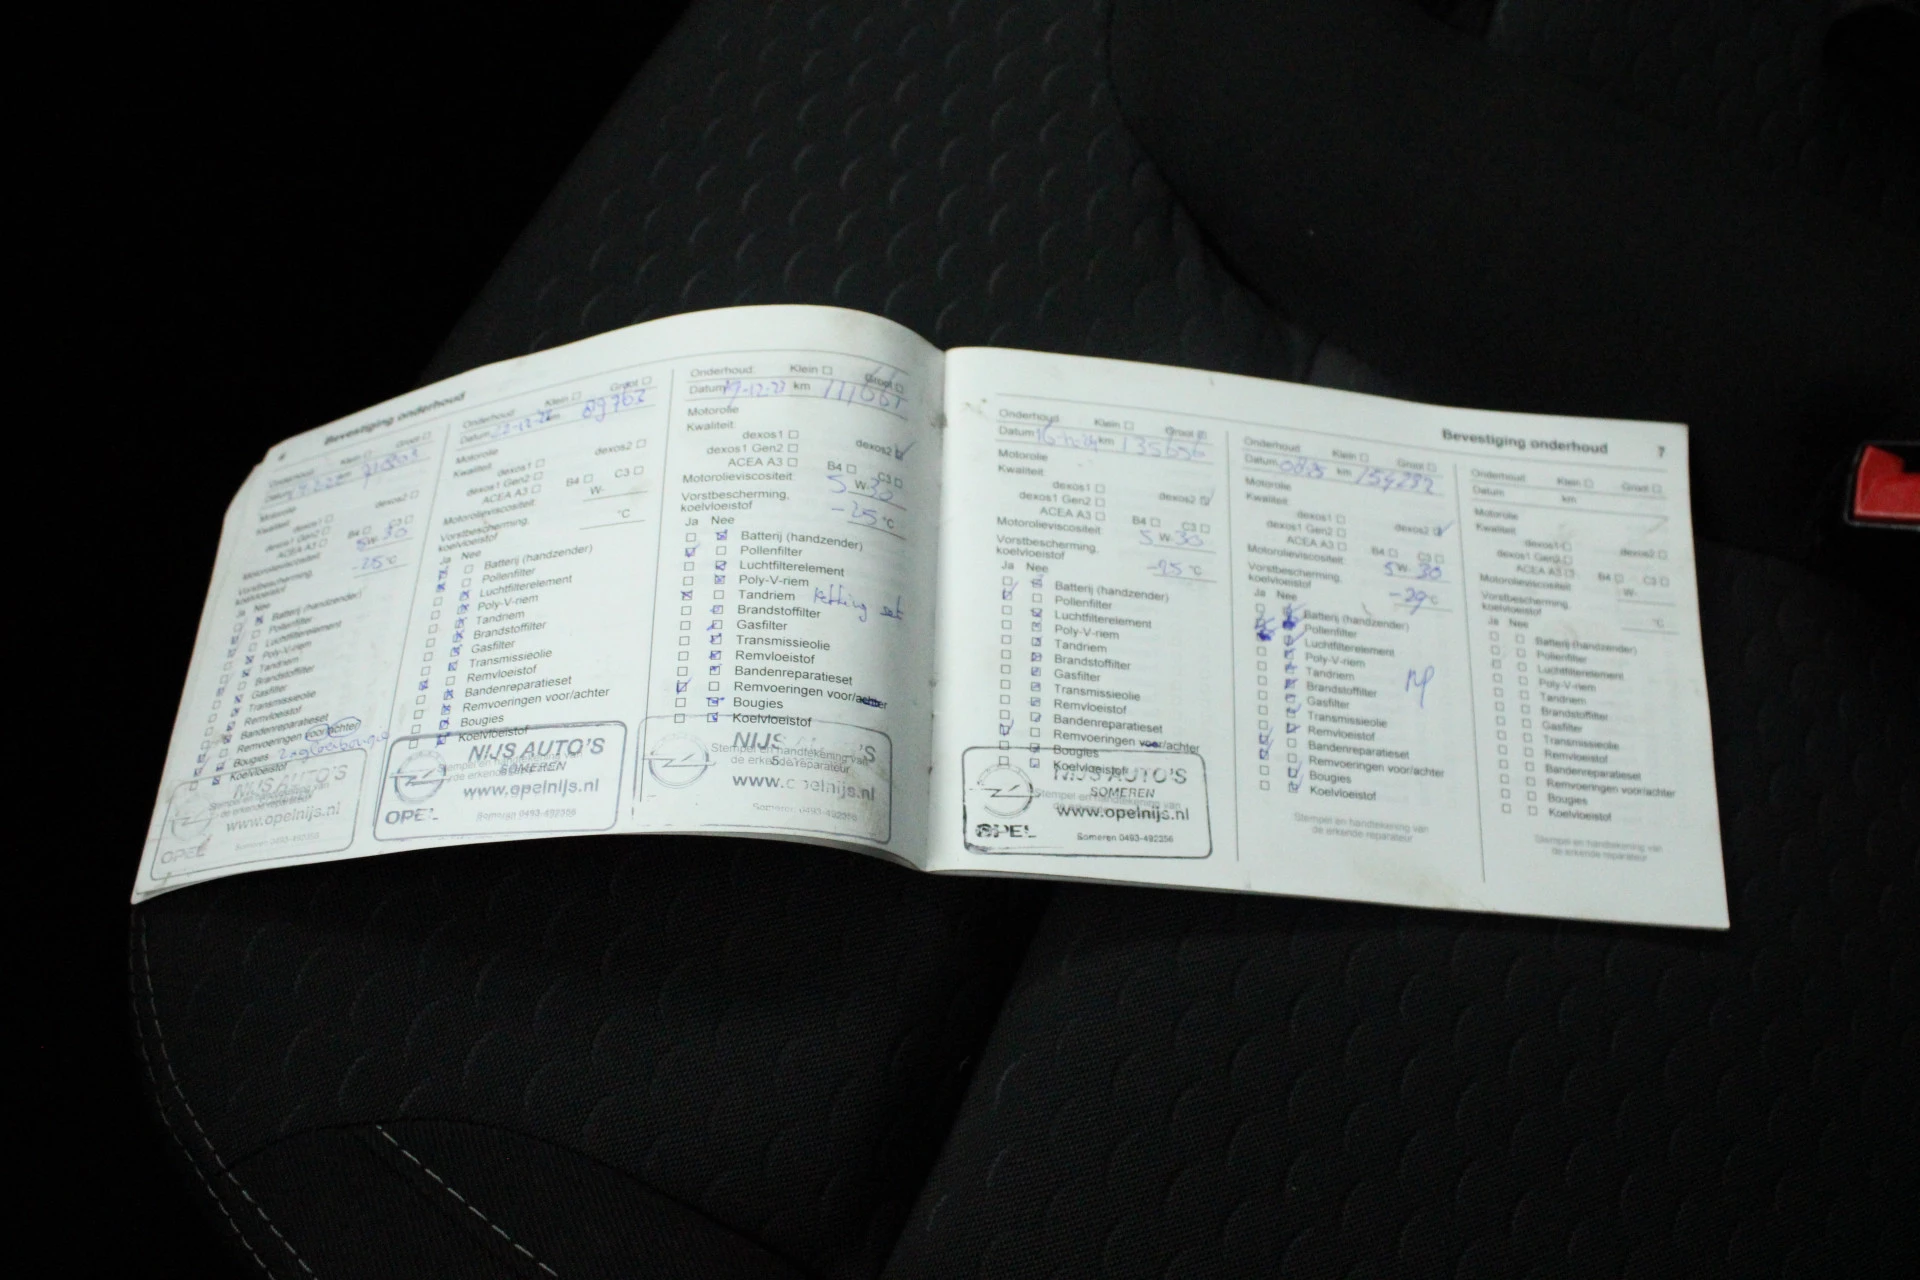 Bevestiging onderhoud
Onderhoud: Klein Groot
Datum km
Motorolie
Kwaliteit: dexos1 dexos2
ACEA A3 B4 C3
Motorolieviscositeit 5 W- 30
Vorstbescherming, koelvloeistof -25 °C
Ja Nee
Batterij (handzender)
Pollenfilter
Luchtfilterelement
Poly-V-riem
Tandriem
Brandstoffilter
Gasfilter
Transmissieolie
Remvloeistof
Bandenreparatieset
Remvoeringen voor/achter
Bougies
Koelvloeistof
NIJS AUTO'S
www.opelnijs.nl
OPEL Someren 0493-492356
Onderhoud: Klein Groot
Datum km 89762
Motorolie
Kwaliteit: dexos2
dexos1
dexos1 Gen2
ACEA A3 B4 C3
Motorolieviscositeit W-
Vorstbescherming,
koelvloeistof °C
Ja Nee
Batterij (handzender)
Pollenfilter
Luchtfilterelement
Poly-V-riem
Tandriem
Brandstoffilter
Gasfilter
Transmissieolie
Remvloeistof
Bandenreparatieset
Remvoeringen voor/achter
Bougies
Koelvloeistof
NIJS AUTO'S
SOMEREN
www.opelnijs.nl
OPEL Someren 0493-492356
Onderhoud: Klein Groot
Datum km 111061
Motorolie
Kwaliteit:
dexos1 dexos2
dexos1 Gen2
ACEA A3 B4 C3
Motorolieviscositeit: 5 W- 30
Vorstbescherming,
koelvloeistof -25 °C
Ja Nee
Batterij (handzender)
Pollenfilter
Luchtfilterelement
Poly-V-riem
Tandriem ketting set
Brandstoffilter
Gasfilter
Transmissieolie
Remvloeistof
Bandenreparatieset
Remvoeringen voor/achter
Bougies
Koelvloeistof
Stempel en handtekening van
de erkende reparateur
Bevestiging onderhoud 7
Onderhoud: Klein Groot
Datum km 135656
Motorolie
Kwaliteit:
dexos1
dexos1 Gen2 dexos2
ACEA A3 B4 C3
Motorolieviscositeit: 5 W- 30
Vorstbescherming,
koelvloeistof -25 °C
Ja Nee
Batterij (handzender)
Pollenfilter
Luchtfilterelement
Poly-V-riem
Tandriem
Brandstoffilter
Gasfilter
Transmissieolie
Remvloeistof
Bandenreparatieset
Remvoeringen voor/achter
Bougies
Koelvloeistof
NIJS AUTO'S
SOMEREN
www.opelnijs.nl
OPEL Someren 0493-492356
Onderhoud: Klein Groot
Datum km 159282
Motorolie
Kwaliteit:
dexos1
dexos1 Gen2 dexos2
ACEA A3 B4 C3
Motorolieviscositeit: 5 W- 30
Vorstbescherming,
koelvloeistof -29 °C
Ja Nee
Batterij (handzender)
Pollenfilter
Luchtfilterelement
Poly-V-riem
Tandriem
Brandstoffilter
Gasfilter
Transmissieolie
Remvloeistof
Bandenreparatieset
Remvoeringen voor/achter
Bougies
Koelvloeistof
Stempel en handtekening van
de erkende reparateur
Onderhoud: Klein Groot
Datum km
Motorolie
Kwaliteit:
dexos1 dexos2
dexos1 Gen2
ACEA A3 B4 C3
Motorolieviscositeit: W-
Vorstbescherming,
koelvloeistof °C
Ja Nee
Batterij (handzender)
Pollenfilter
Luchtfilterelement
Poly-V-riem
Tandriem
Brandstoffilter
Gasfilter
Transmissieolie
Remvloeistof
Bandenreparatieset
Remvoeringen voor/achter
Bougies
Koelvloeistof
Stempel en handtekening van
de erkende reparateur